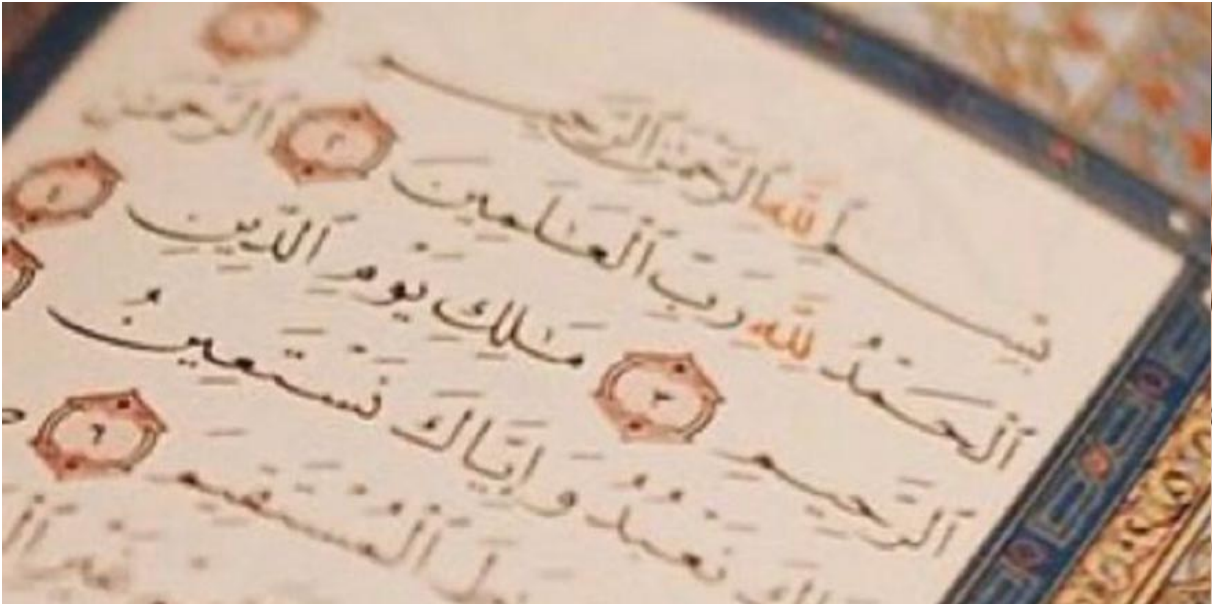 بِسْمِ ٱللَّهِ ٱلرَّحْمَٰنِ ٱلرَّحِيمِ ١
ٱلْحَمْدُ لِلَّهِ رَبِّ ٱلْعَٰلَمِينَ ٢ ٱلرَّحْمَٰنِ
ٱلرَّحِيمِ ٣ مَٰلِكِ يَوْمِ ٱلدِّينِ ٤
نَعْبُدُ وَإِيَّاكَ نَسْتَعِينُ
ٱلْمُسْتَقِيمَ ٦